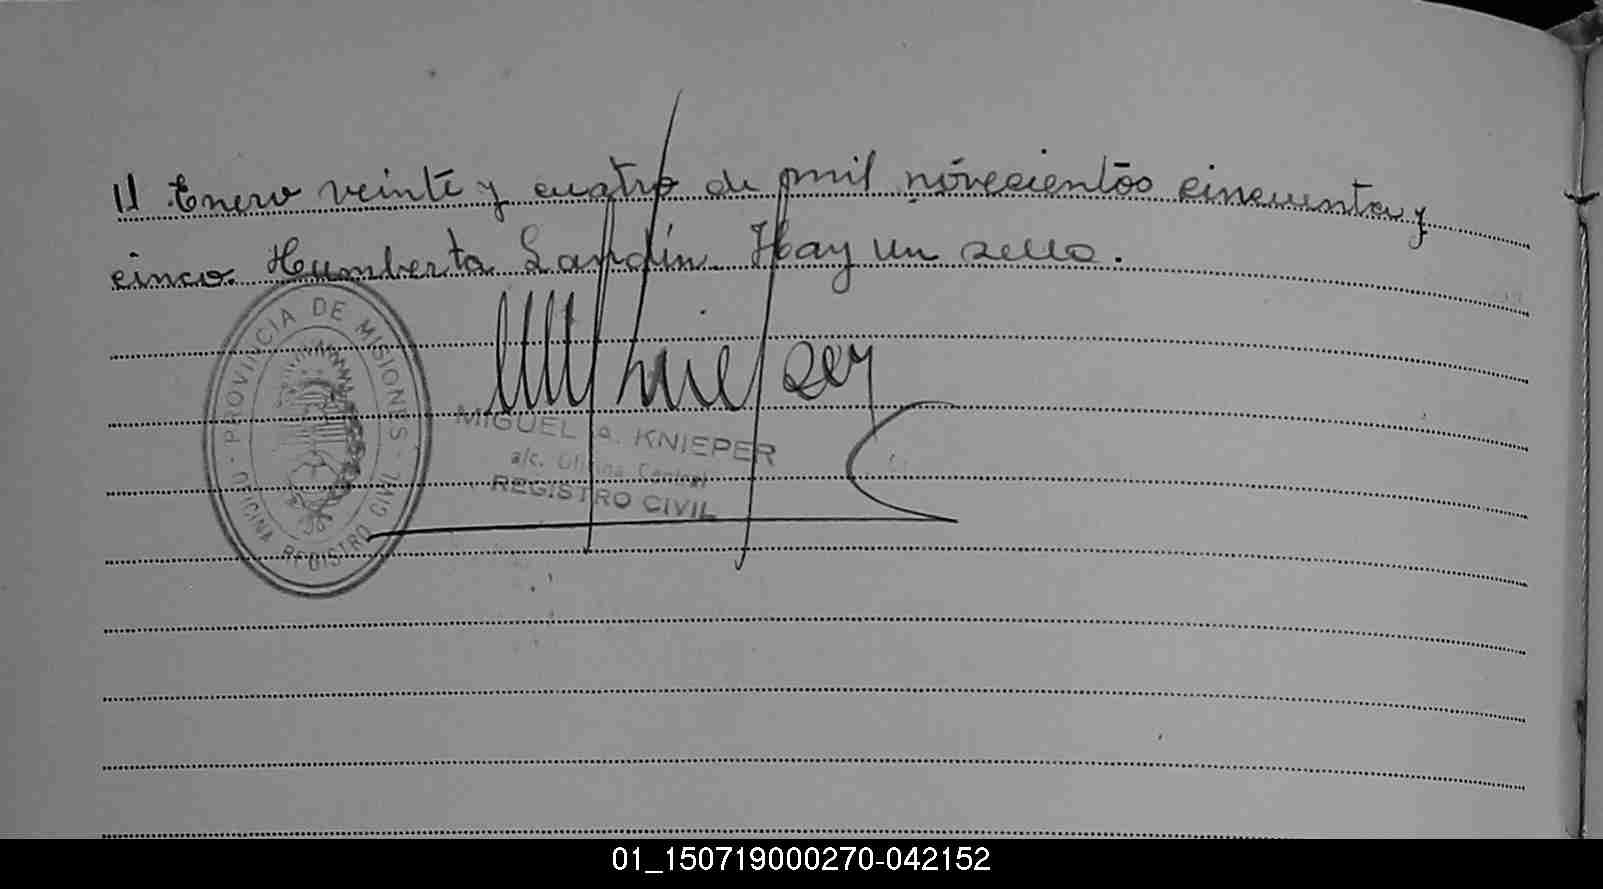 // Enero veinte y cuatro de mil novecientos cincuenta y
cinco. Humberto Landin. Hay un sello.
PROVINCIA DE MISIONES
OFICINA REGISTRO CIVIL
MIGUEL A. KNIEPER
a/c. Oficina Central
REGISTRO CIVIL
01_150719000270-042152